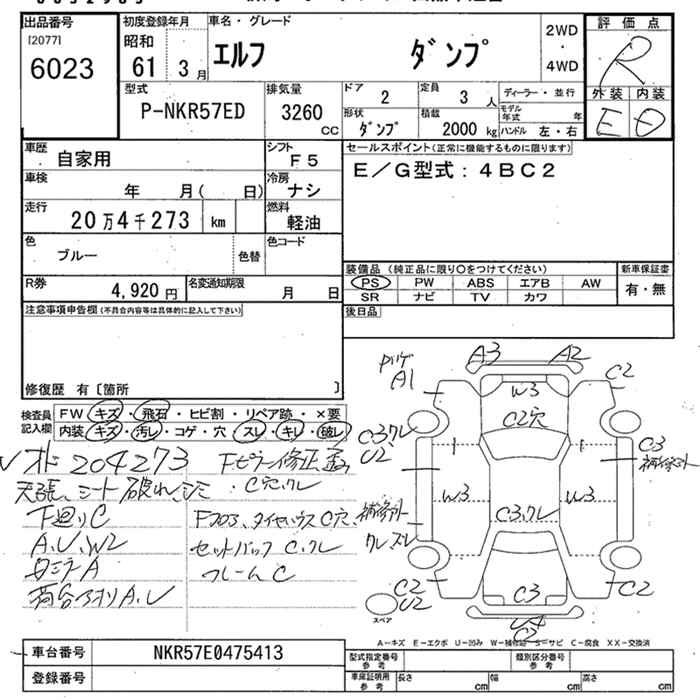 出品番号
[2077]
6023
初度登録年月
昭和
61 3月
車名・グレード
エルフ ダンプ
2WD
・
4WD
評価点
R
外装 内装
E D
型式
P-NKR57ED
排気量
3260
cc
ドア
2
定員
3 人
形状
ダンプ
積載
2000 kg
ディーラー・並行
モデル
年式 年
ハンドル 左・右
車歴
自家用
シフト
F5
車検
年 月( 日)
冷房
ナシ
走行
20万4千273 km
燃料
軽油
色
ブルー
色替
色コード
R券
4,920円
名変通知期限
月 日
セールスポイント(正常に機能するものに限ります)
E/G型式:4BC2
装備品(純正品に限り○をつけてください)
PS PW ABS エアB AW
SR ナビ TV カワ
新車保証書
有・無
後日品
注意事項申告欄(不具合内容等は具体的に記入して下さい)
修復歴 有〔箇所 〕
検査員
記入欄
FW キズ・飛石・ヒビ割・リペア跡・×要
内装 キズ・汚レ・コゲ・穴 スレ・キレ・破レ
204273
天張、シート破れ、シミ
・C穴、クレ
下廻りC
A、U、W2
セットバック C、クレ
フレームC
荷台アオリA、U
A3 A2
A1
C2
W3
C2穴
C3、クレ
U2
C3
W3 W3
C3、クレ
C2
U2
C2
C3
スペア
A-キズ E-エクボ U-凹み W-補修跡 S-サビ C-腐食 XX-交換済
車台番号
NKR57E0475413
登録番号
型式指定番号
参考
類別区分番号
参考
車庫証明用
参考
長さ cm 幅 cm 高さ cm